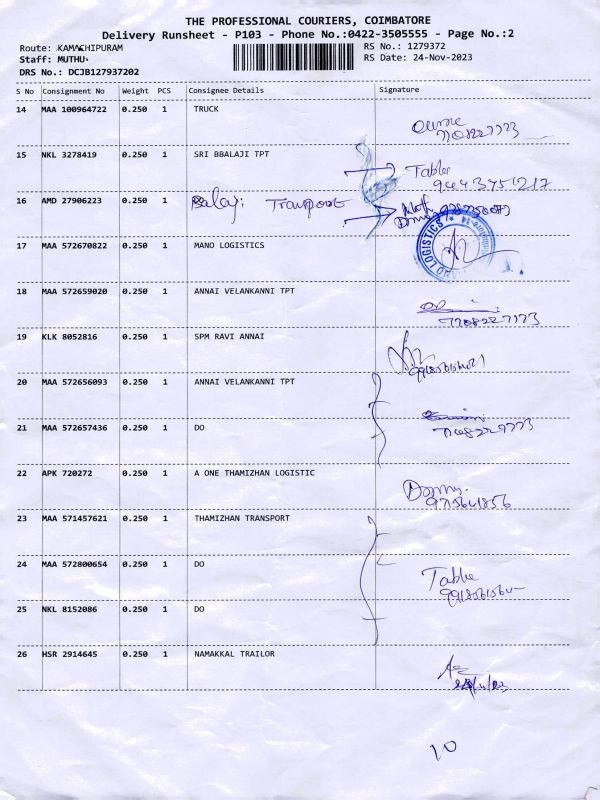 THE PROFESSIONAL COURIERS, COIMBATORE
Delivery Runsheet - P103 - Phone No.:0422-3505555 - Page No.:2
Route: KAMACHIPURAM RS No.: 1279372
Staff: MUTHU. RS Date: 24-Nov-2023
DRS No.: DCJB127937202
S No Consignment No Weight PCS Consignee Details Signature
14 MAA 100964722 0.250 1 TRUCK
15 NKL 3278419 0.250 1 SRI BBALAJI TPT
Table
16 AMD 27906223 0.250 1 Balaji Tranport
17 MAA 572670822 0.250 1 MANO LOGISTICS
LOGISTICS
18 MAA 572659020 0.250 1 ANNAI VELANKANNI TPT
19 KLK 8052816 0.250 1 SPM RAVI ANNAI
20 MAA 572656093 0.250 1 ANNAI VELANKANNI TPT
21 MAA 572657436 0.250 1 DO
22 APK 720272 0.250 1 A ONE THAMIZHAN LOGISTIC
9715641856
23 MAA 571457621 0.250 1 THAMIZHAN TRANSPORT
24 MAA 572800654 0.250 1 DO
Table
25 NKL 8152086 0.250 1 DO
26 HSR 2914645 0.250 1 NAMAKKAL TRAILOR
10